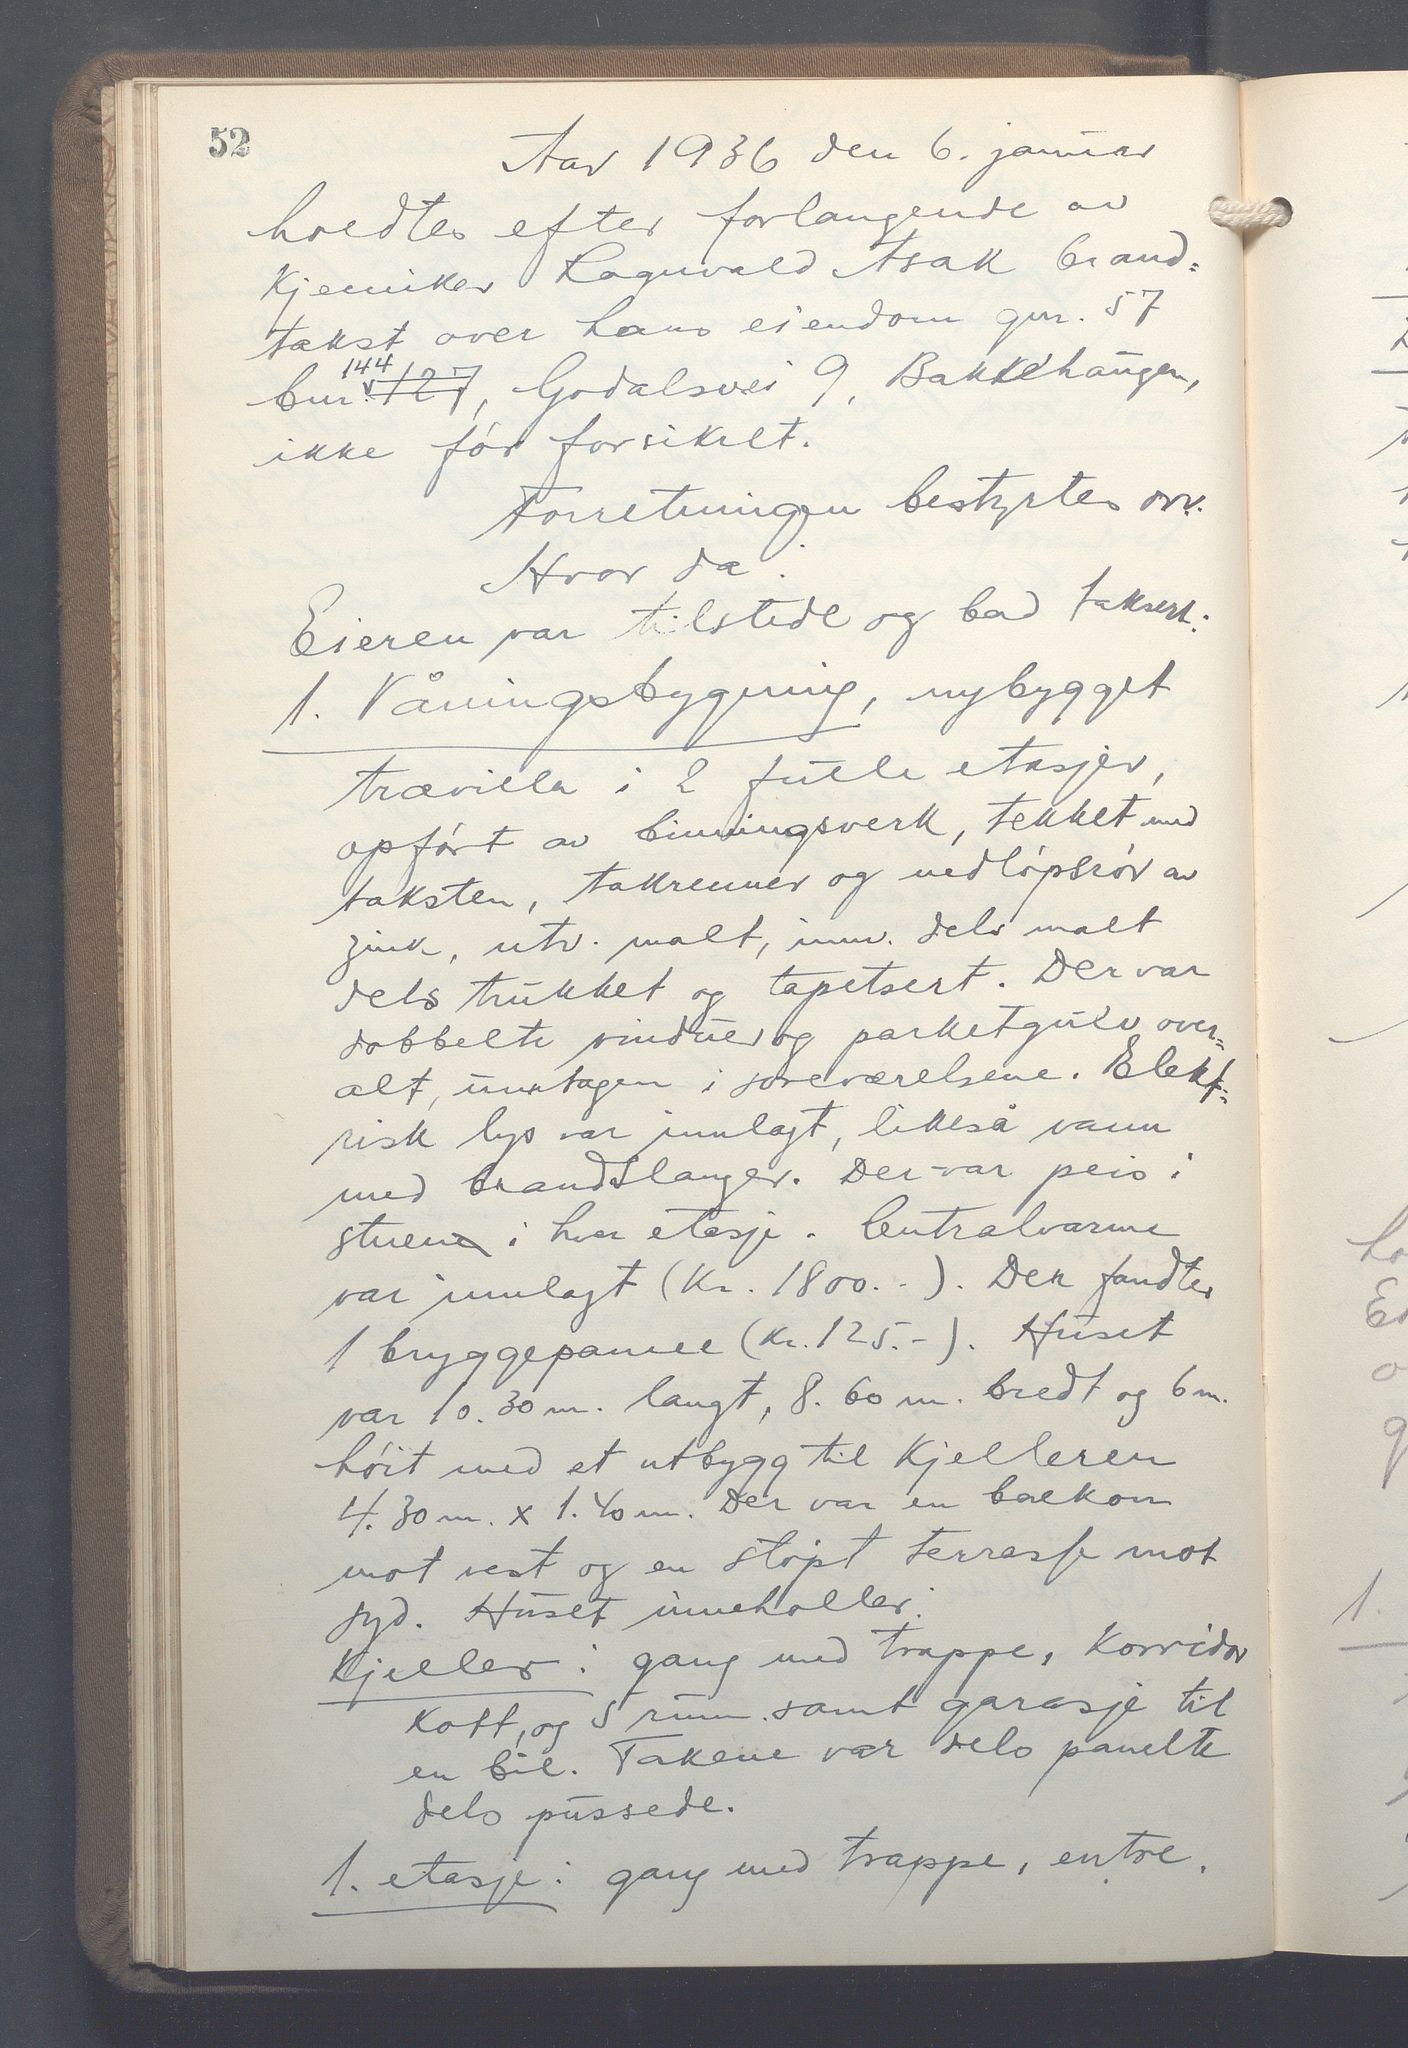 52
Aar 1936 den 6. januar
holdtes efter forlangende av
Kjemiker Ragnvald Asak brand-
takst over hans eiendom gnr. 57
bnr. 144 127, Godalsvei 9, Bakkehaugen,
ikke før forsikret.
Forretningen bestyrtes ovv.
Hvor da:
Eieren var tilstede og bad taksert:
1. Våningsbygning, nybygget
trævilla i 2 fulle etasjer,
opført av binningsverk, tekket med
taksten, takrenner og nedløpsrør av
zink, utv. malt, innv. dels malt
dels trukket og tapetsert. Der var
dobbelte vinduer og parketgulv over-
alt, unntagen i soveværelsene. Elekt-
risk lys var innlagt, likeså vann
med brandslanger. Der var peis i
stuene i hver etasje. Centralvarme
var innlagt (Kr. 1800.-). Der fandtes
1 bryggepanne (Kr. 125.-). Huset
var 10.30 m. langt, 8.60 m. bredt og 6 m.
høit med et utbygg til Kjelleren
4.30 m. x 1.40 m. Der var en balkon
mot vest og en støpt terrasse mot
syd. Huset inneholler:
Kjeller: gang med trappe, Korridor
Kott, og 5 rum samt garasje til
en bil. Takene var dels panelte
dels pussede.
1. etasje: gang med trappe, entre,